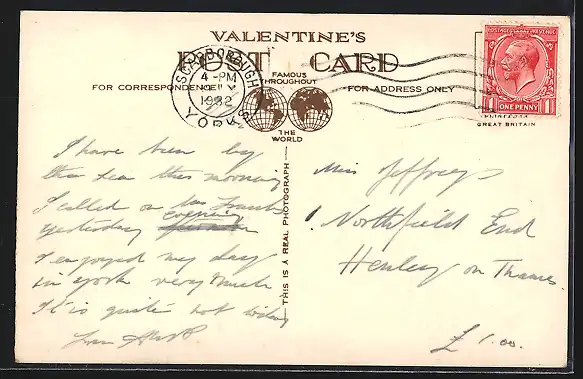 VALENTINE'S
POST CARD
FOR CORRESPONDENCE
FAMOUS
THROUGHOUT
THE
WORLD
FOR ADDRESS ONLY
SCARBOROUGH
4 - PM
1932
YORKS
POSTAGE REVENUE
1 ONE PENNY 1
GREAT BRITAIN
THIS IS A REAL PHOTOGRAPH
I have been by
the sea this morning
I called on Mrs
yesterday evening
I enjoyed my day
in york very much
It is quite hot today
from
Miss Jeffreys
1 Northfield End
Henley on Thames
£1.00.